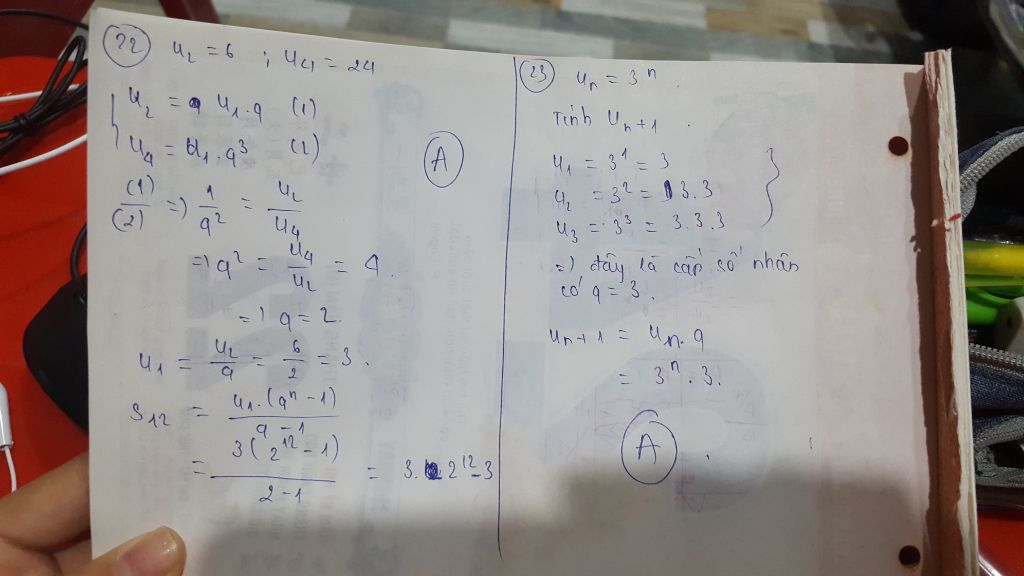 22 u₂ = 6 ; u₄ = 24
u₂ = u₁.q (1)
u₄ = u₁.q³ (2)
(1)/(2) => 1/q² = u₂/u₄
=> q² = u₄/u₂ = 4.
=> q = 2.
u₁ = u₂/q = 6/2 = 3.
S₁₂ = u₁.(qⁿ - 1)/(q - 1)
= 3(2¹² - 1)/(2 - 1) = 3.2¹² - 3
A
23 uₙ = 3ⁿ
Tính uₙ₊₁.
u₁ = 3¹ = 3
u₂ = 3² = 3.3
u₃ = 3³ = 3.3.3
=> đây là cấp số nhân
có q = 3.
uₙ₊₁ = uₙ.q
= 3ⁿ.3.
A